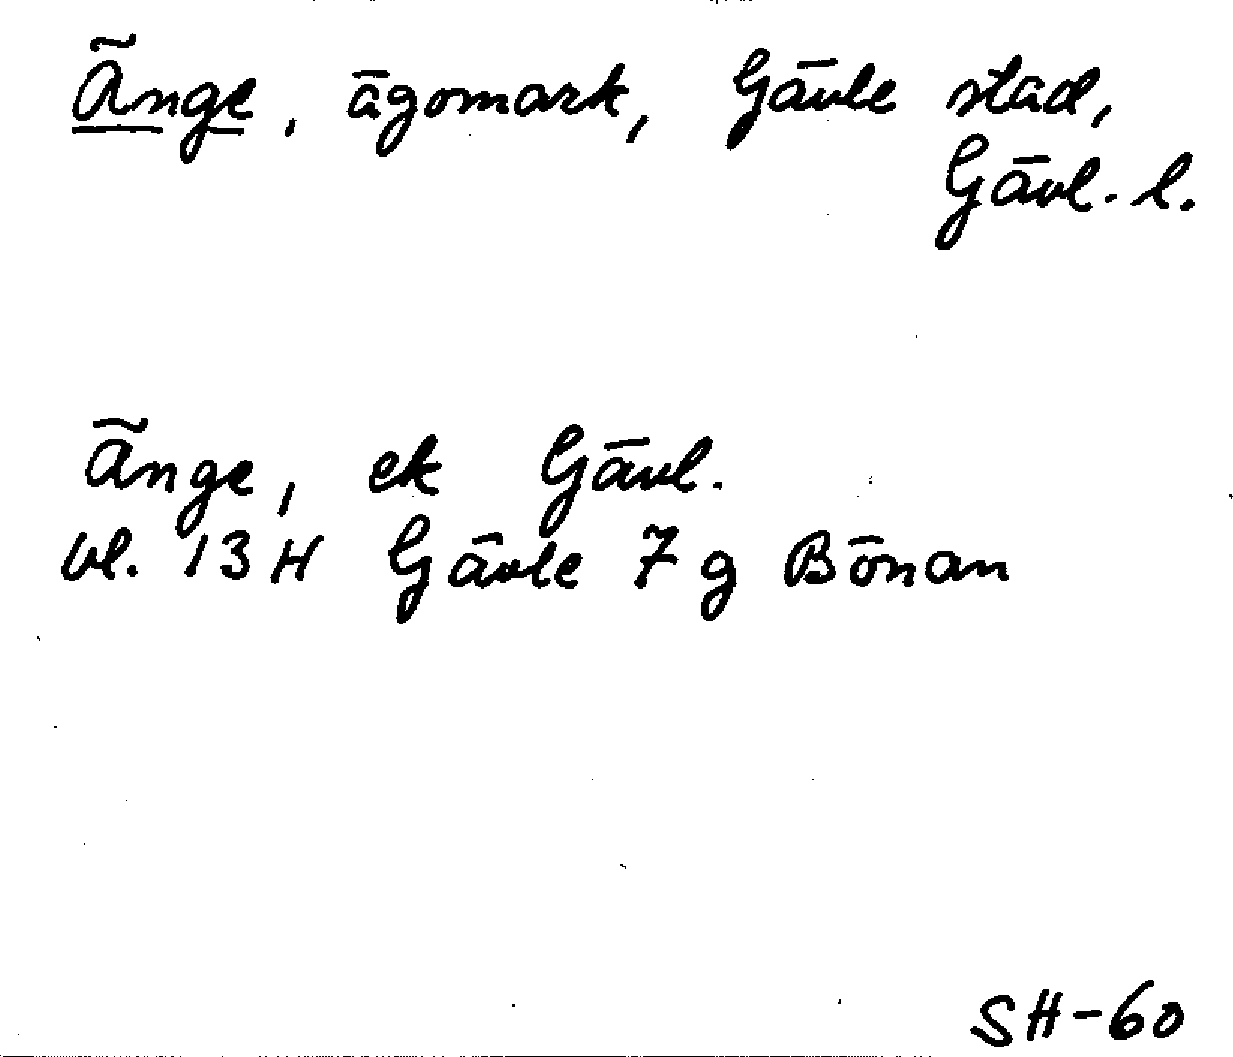 Änge, ägomark, Gävle stad,
Gävl. l.
Änge, ek Gävl.
bl. 13H Gävle 7 g Bönan
SH-60